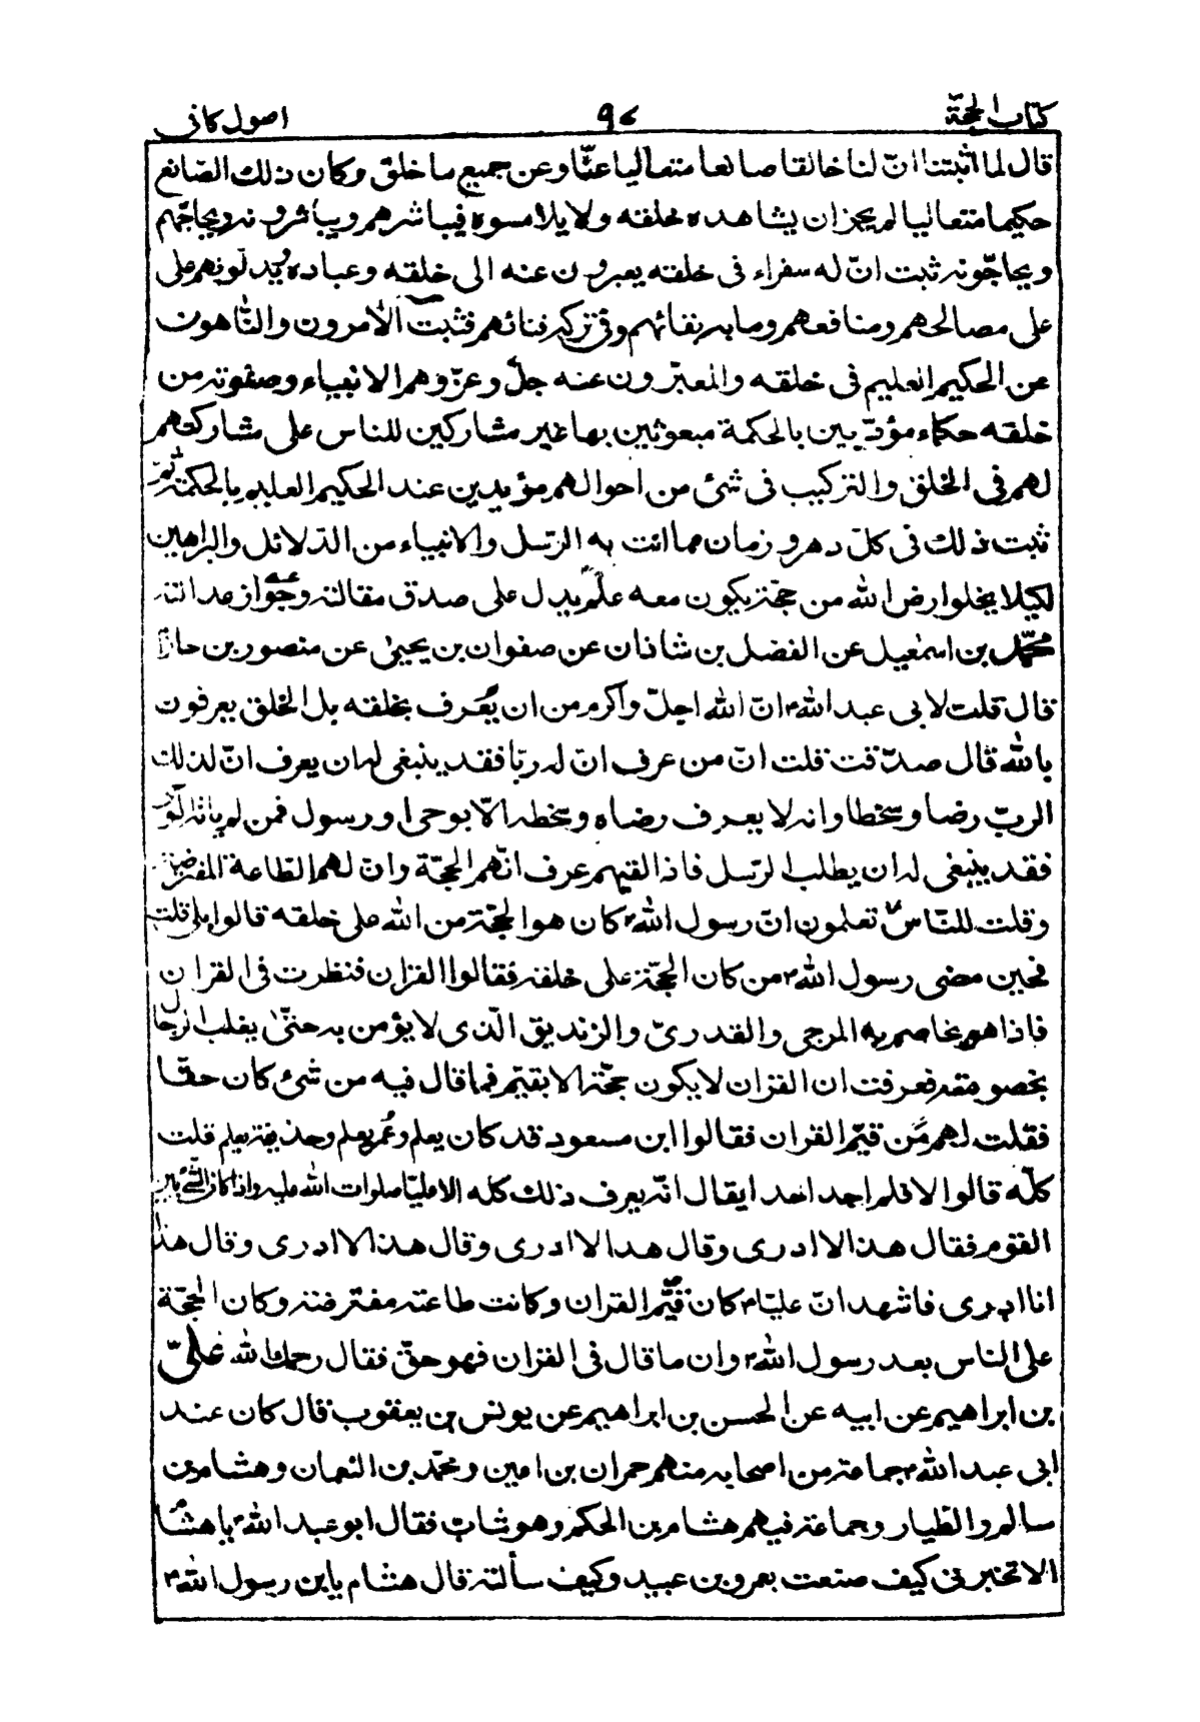 كتاب الحجّة
اصول كافى
قال لما اثبتنا انّ لنا خالقا صانعا متعاليا عنّا وعن جميع ما خلق وكان ذلك الصّانع
حكيما متعاليا لم يجز ان يشاهده خلقه ولا يلامسوه فيباشرهم ويباشرونه ويحاجّهم
ويحاجّونه ثبت انّ له سفراء فى خلقه يعبرون عنه الى خلقه وعباده ويدلونهم على
على مصالحهم ومنافعهم وما به بقائهم وفى تركه فنائهم فثبت الآمرون والنّاهون
عن الحكيم العليم فى خلقه والمعبّرون عنه جلّ وعزّ وهم الانبياء وصفوته من
خلقه حكماء مؤدّبين بالحكمة مبعوثين بها غير مشاركين للناس على مشاركتهم
لهم فى الخلق والتركيب فى شئ من احوالهم مؤيدين عند الحكيم العليم بالحكمة ثمّ
ثبت ذلك فى كلّ دهر و زمان مما اتت به الرّسل والانبياء من الدّلائل والبراهين
لكيلا يخلوا رض الله من حجّة يكون معه علم يدل على صدق مقالته وجواز عدالته
محمّد بن اسمعيل عن الفضل بن شاذان عن صفوان بن يحيى عن منصور بن حازم
قال قلت لابى عبد الله ٢ انّ الله اجلّ واكرم من ان يُعرف بخلقه بل الخلق يعرفون
بالله قال صدّقت قلت انّ من عرف انّ له ربّا فقد ينبغى له ان يعرف انّ لذلك
الربّ رضا وسخطا وانه لا يعرف رضاه وسخطه الّا بوحى او رسول فمن لم ياته الوحى
فقد ينبغى له ان يطلب الرّسل فاذا لقيهم عرف انّهم الحجّة وانّ لهم الطّاعة المفترضة
وقلت للنّاس تعلمون انّ رسول الله كان هو الحجّة من الله على خلقه قالوا بلى قلت
فحين مضى رسول الله من كان الحجّة على خلقه فقالوا القران فنظرت فى القران
فاذا هو يخاصم به المرجى والقدرىّ والزنديق الّذى لا يؤمن به حتّى يغلب الرجال
بخصومته فعرفت ان القران لا يكون حجّة الا بقيّم فما قال فيه من شئ كان حقّا
فقلت لهم مَن قيّم القران فقالوا ابن مسعود قد كان يعلم وعُمر يعلم وحذيفة يعلم قلت
كلّه قالوا لا فلم اجد احدا يقال انّه يعرف ذلك كله الا عليّا صلوات الله عليه واذا كان الشئ بين
القوم فقال هذا لا ادرى وقال هذا لا ادرى وقال هذا لا ادرى وقال هذا
انا ادرى فاشهد انّ عليّا كان قيّم القران وكانت طاعته مفترضة وكان الحجّة
على الناس بعد رسول الله وان ما قال فى القران فهو حقّ فقال رحمك الله علىّ
بن ابراهيم عن ابيه عن الحسن بن ابراهيم عن يونس بن يعقوب قال كان عند
ابى عبد الله جماعة من اصحابه منهم حمران بن اعين ومحمّد بن النعمان وهشام بن
سالم والطّيار وجماعة فيهم هشام بن الحكم وهو شابّ فقال ابو عبد الله يا هشام
الا تخبرنى كيف صنعت بعمرو بن عبيد وكيف سألته قال هشام يا بن رسول الله